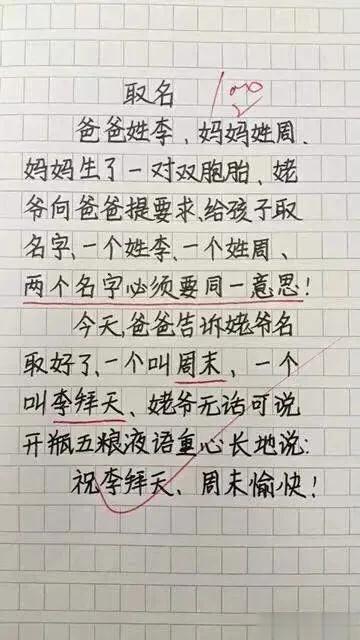 取名 100
爸爸姓李、妈妈姓周、
妈妈生了一对双胞胎、姥
爷向爸爸提要求、给孩子取
名字、一个姓李、一个姓周、
两个名字必须要同一意思！
今天、爸爸告诉姥爷名
取好了、一个叫周末、一个
叫李拜天、姥爷无话可说
开瓶五粮液语重心长地说：
祝李拜天、周末愉快！